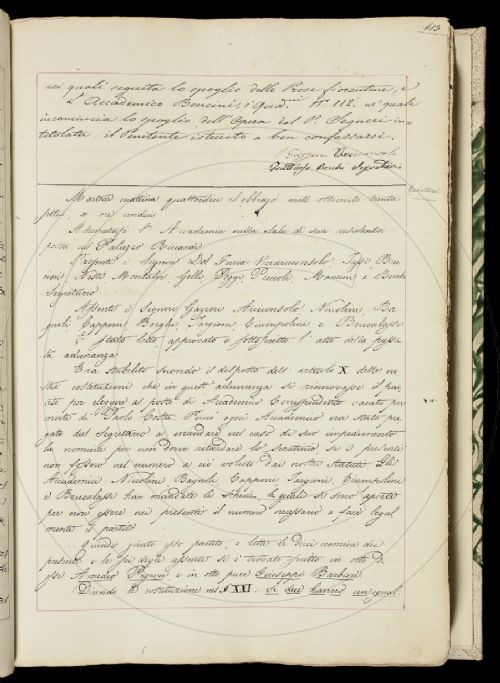 413
nei quali seguita lo spoglio delle Prose fiorentine, e
L'Accademico Bencini, i Quad.ni N.° 112. ne' quali
incomincia lo spoglio dell'Opera del P. Segneri in-
titolata: il Penitente istruito a ben confessarsi.
Segretario
Martedì mattina quattordici Febbrajo mille ottocento trenta
sette, a ore undici
Adunatasi l'Accademia nella Sala di sua residenza
posta nel Palazzo Riccardi
Presenti i Signori Del Furia Viceconsolo,
Montalvi Gelli Poggi Piccioli, Mancini e Becchi
Segretario
Assenti i Signori Gazzeri Arciconsolo, Niccolini, Ba
gnoli Capponi Borghi, Targioni, Ciampolini e Brucalassi
È stato letto approvato e sottoscritto l'atto della passa
ta adunanza
Era stabilito secondo il disposto dell'articolo X delle no
stre costituzioni che in quest'adunanza si rinnovasse il par
tito per eleggere al posto di Accademico Corrispondente vacato per
morte di Paolo Costa. Perciò ogni Accademico era stato pre
gato dal Segretario a mandare nel caso di suo impedimento
la nomina per non dover ritardare lo scrutinio se i presenti
non fossero nel numero a ciò voluto dai nostri Statuti. Gli
Accademici Niccolini Bagnoli Capponi Targioni, Ciampolini
e Brucalassi han mandate le schede, le quali si sono aperte
per non essere nei presenti il numero necessario a fare legal
mente il partito
Quindi girato esso partito, e lette le dieci nomine dei
presenti e le sei degli assenti si è trovato scritto in otto d'
esse Amedeo Peyron, e in otto pure Giuseppe Barbieri
Dicendo la costituzione nel § XXI: Se due hanno un egual